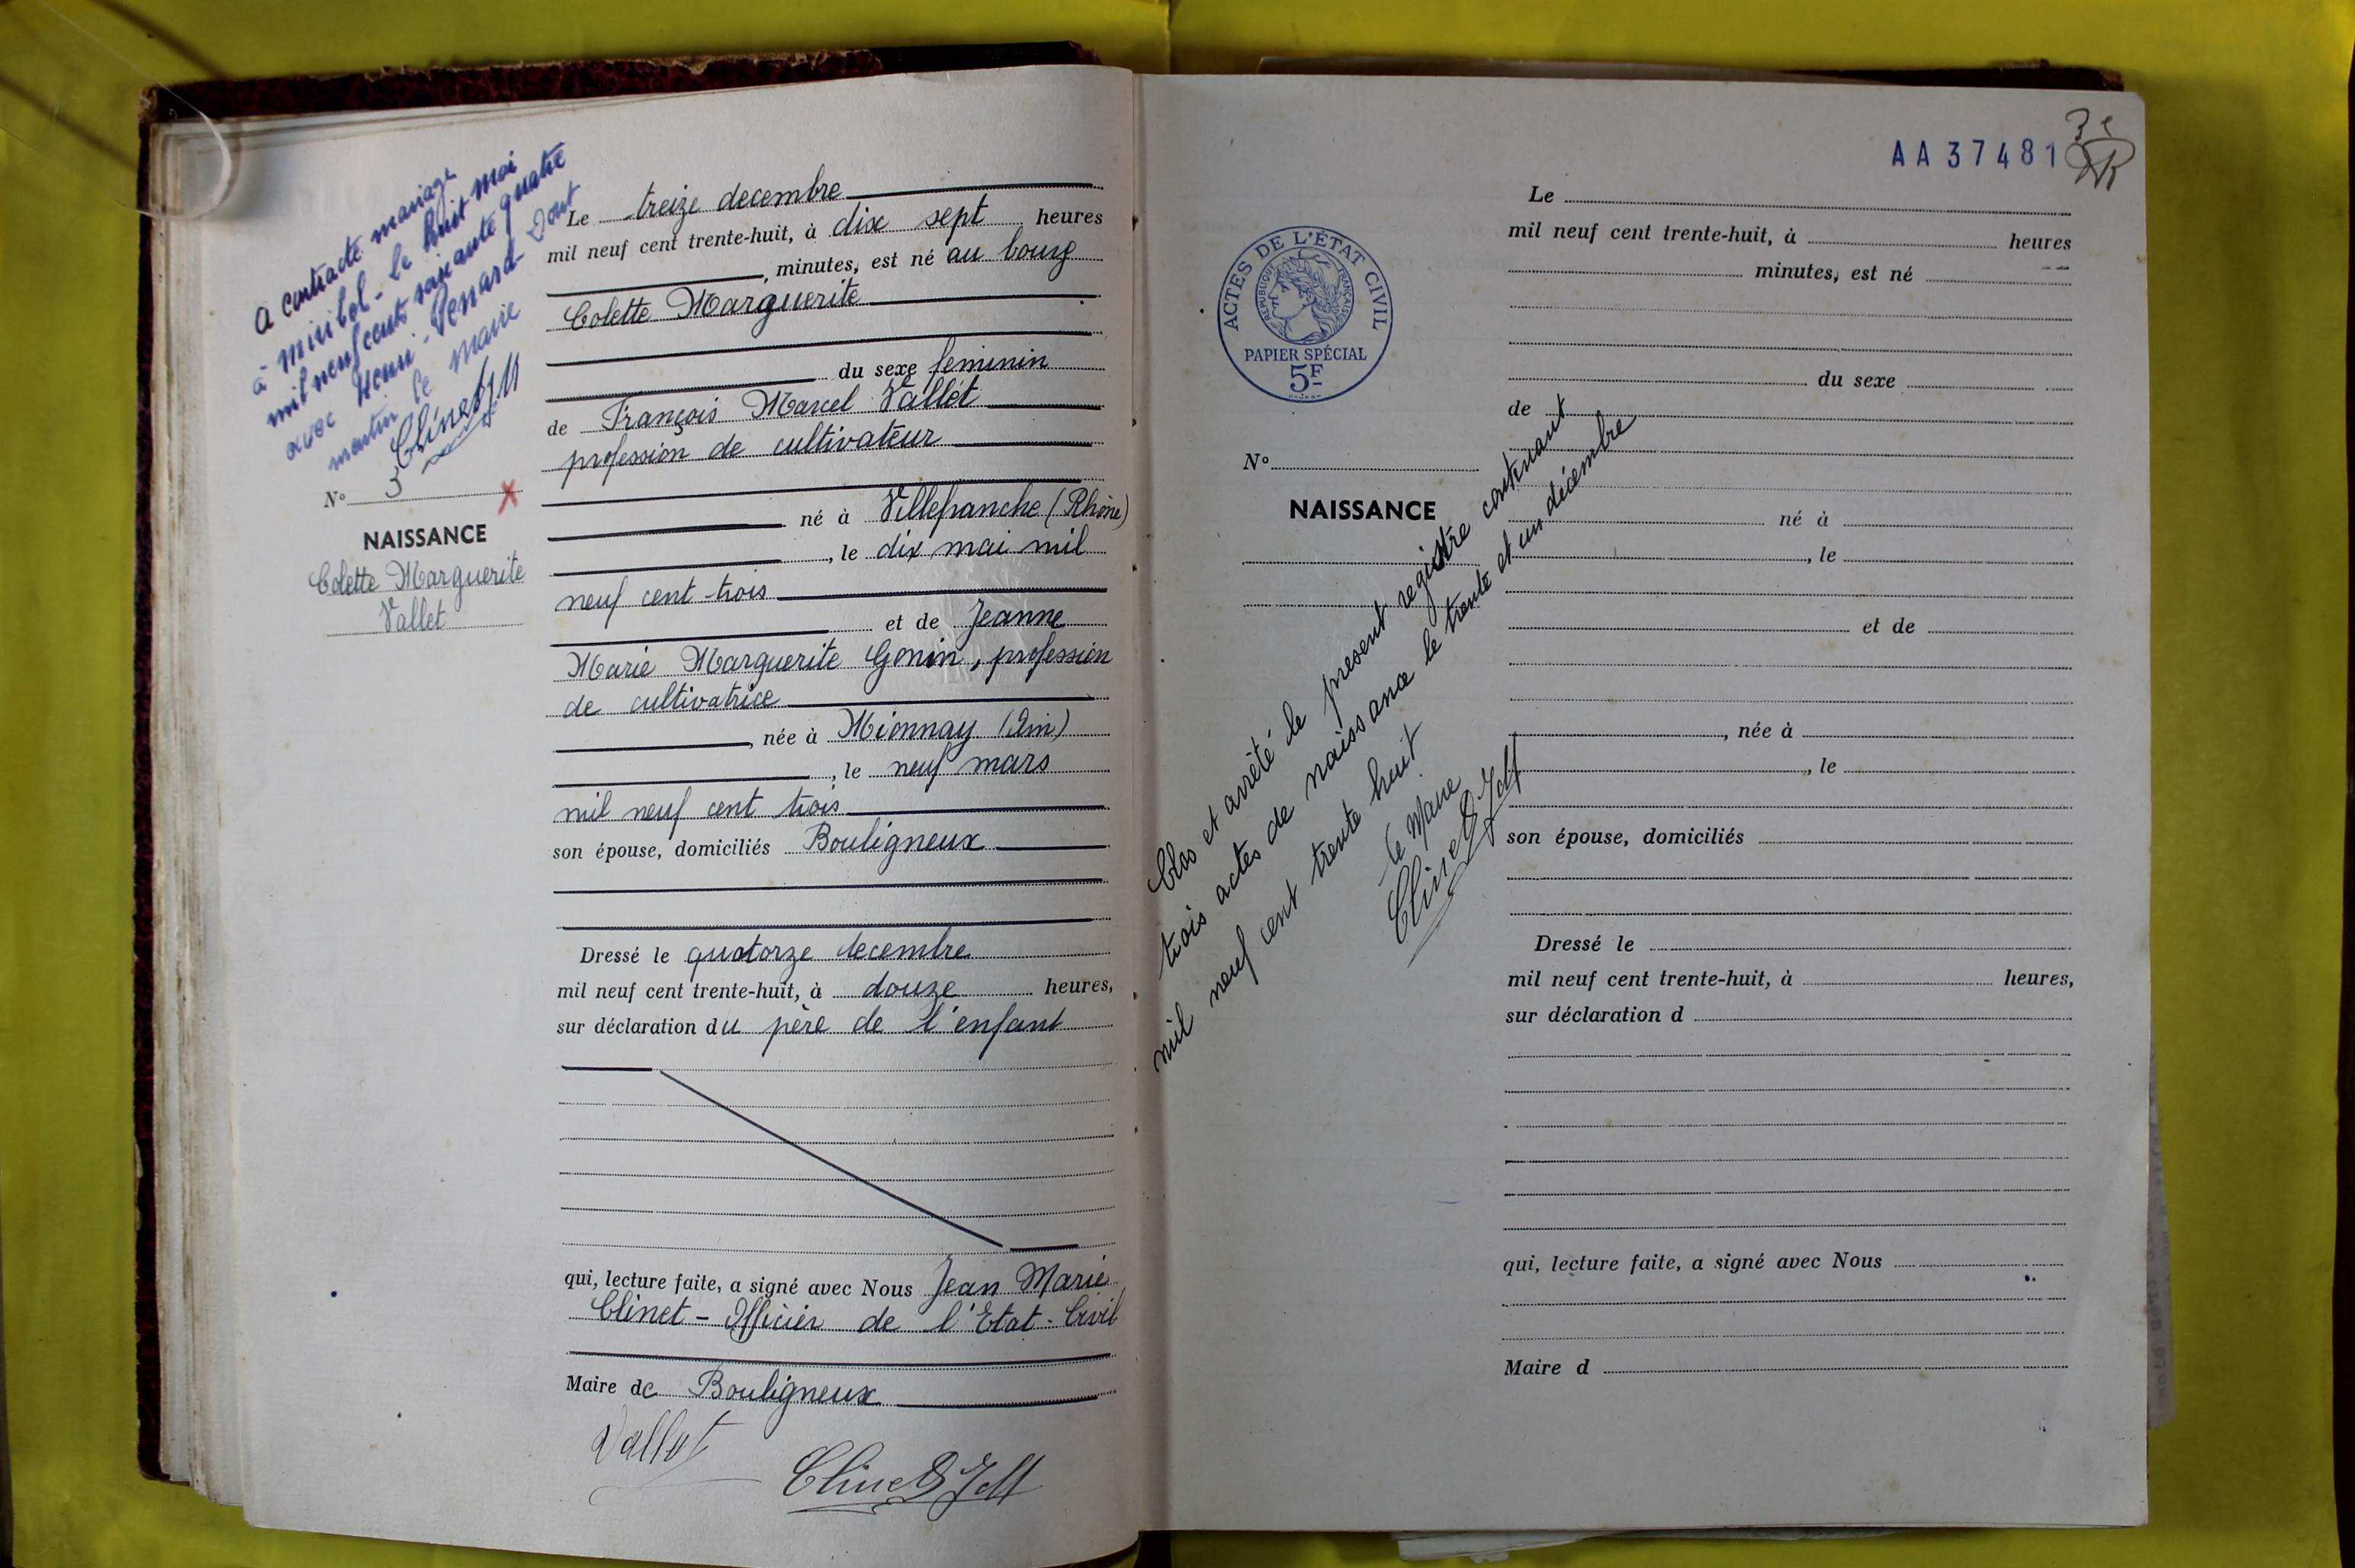 A contracté mariage
à Miribel - le huit mai
mil neuf cents soixante quatre
avec Henri - Penard - Dont
mention le maire
Clinet JM
N° 3
NAISSANCE
Colette Marguerite
Vallet
Le treize decembre
mil neuf cent trente-huit, à dix sept heures
minutes, est né au bourg
Colette Marguerite
du sexe feminin
de François Marcel Vallet
profession de cultivateur
né à Villefranche (Rhône)
, le dix mai mil
neuf cent trois
et de Jeanne
Marie Marguerite Gonin, profession
de cultivatrice
, née à Mionnay (Ain)
, le neuf mars
mil neuf cent trois
son épouse, domiciliés Bouligneux
Dressé le quatorze decembre
mil neuf cent trente-huit, à douze heures,
sur déclaration du père de l'enfant
qui, lecture faite, a signé avec Nous Jean Marie
Clinet - Officier de l'Etat - Civil
Maire de Bouligneux
Vallet
Clinet JM
AA37481
3e
ACTES DE L'ÉTAT CIVIL
RÉPUBLIQUE FRANÇAISE
PAPIER SPÉCIAL
5F
N°
NAISSANCE
Clos et arrêté le present registre contenant
trois actes de naissance le trente et un décembre
mil neuf cent trente huit
Le Maire
Clinet JM
Le
mil neuf cent trente-huit, à heures
minutes, est né
du sexe
de
né à
, le
et de
, née à
, le
son épouse, domiciliés
Dressé le
mil neuf cent trente-huit, à heures,
sur déclaration d
qui, lecture faite, a signé avec Nous
Maire d